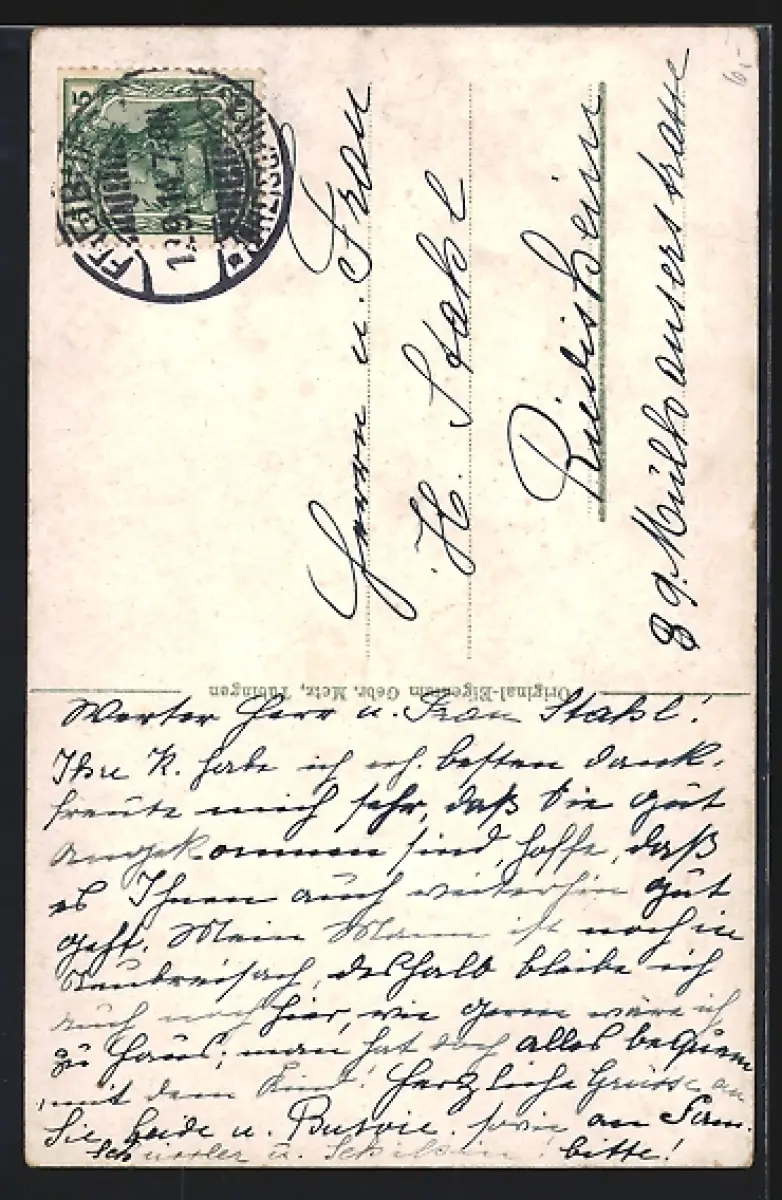 5
1.-9.14.7-8N
Herrn u. Frau
H. Stahl
Riedisheim
89. Mülhauserstrasse
6,-
Original-Eigentum Gebr. Metz, Tübingen
Werter Herr u. Frau Stahl!
Ihre K. habe ich erh. besten Dank,
freute mich sehr, daß Sie gut
angekommen sind, hoffe, daß
es Ihnen auch weiterhin gut
geht. Mein Mann ist noch in
Neubreisach, deshalb bleibe ich
auch noch hier, wie gern wäre ich
zu Haus; man hat doch alles bequem
mit dem Kind! Herzliche Grüsse an
Sie beide u. sowie an Fam.
u. bitte!